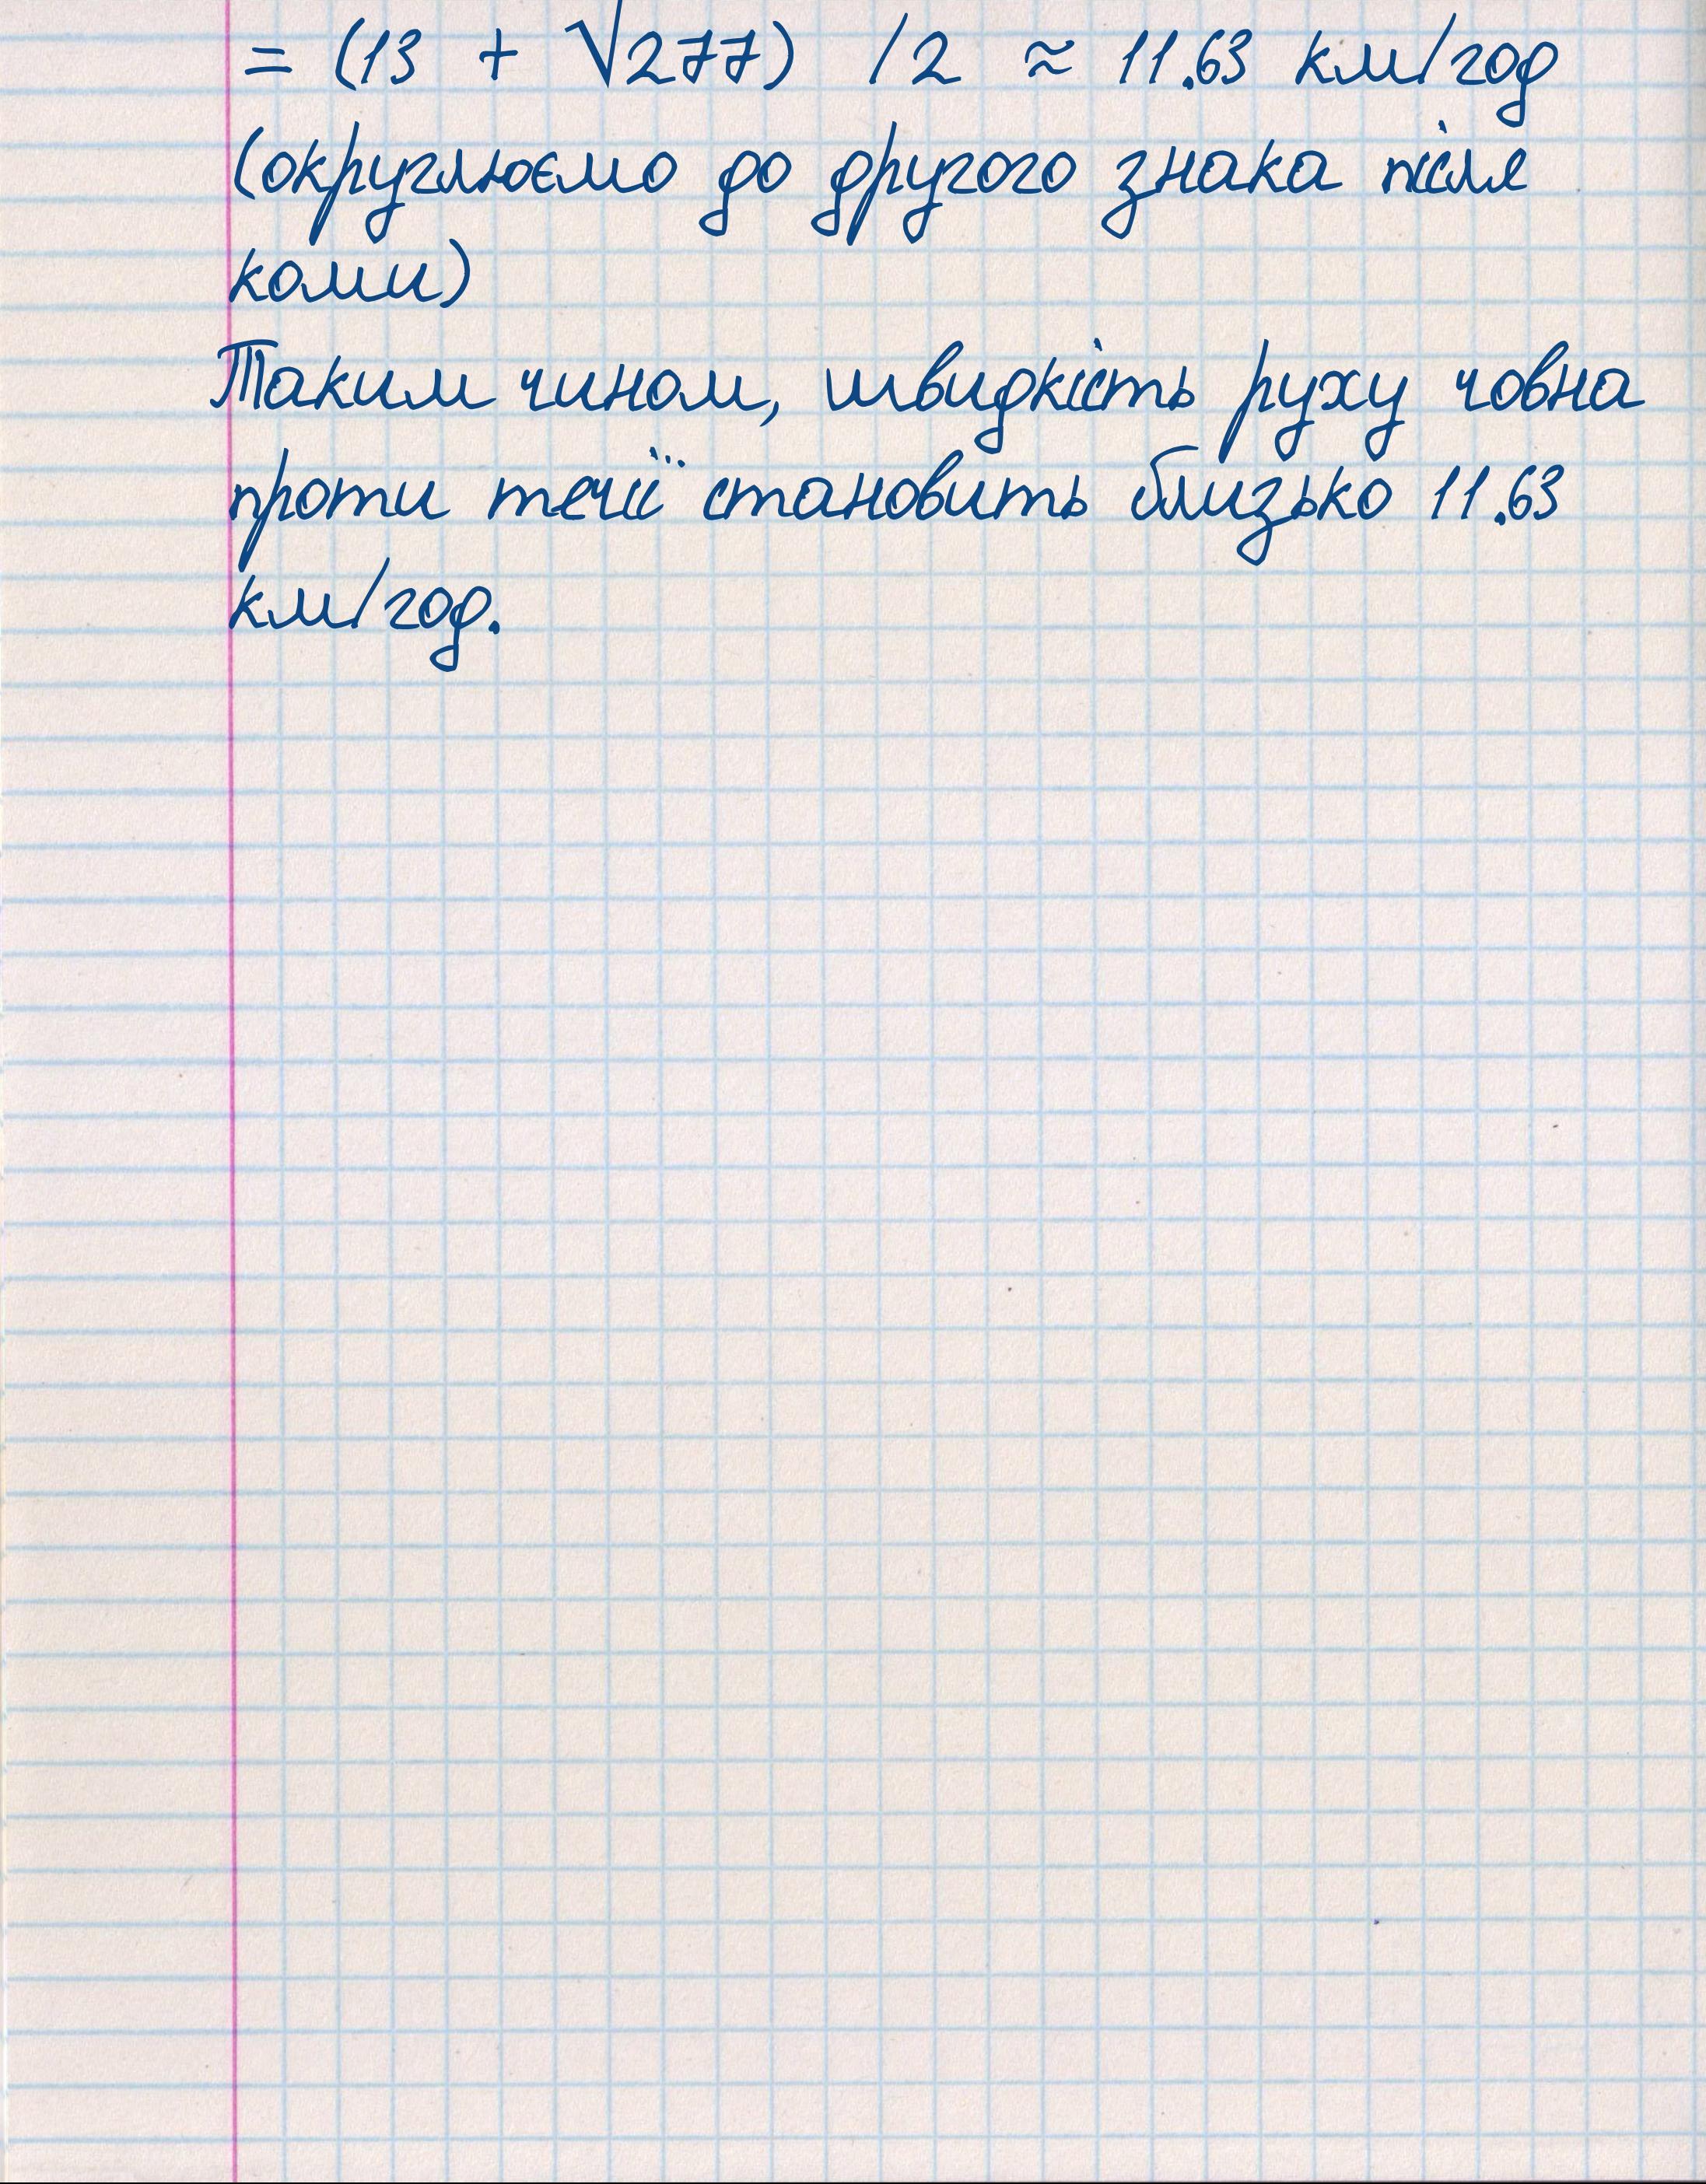 = (13 + √277) /2 ≈ 11.63 км/год
(округлюємо до другого знака після
коми)
Таким чином, швидкість руху човна
проти течії становить близько 11.63
км/год.